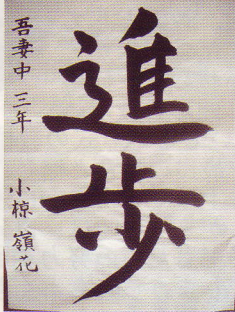 進歩
吾妻中 三年
小椋 嶺花